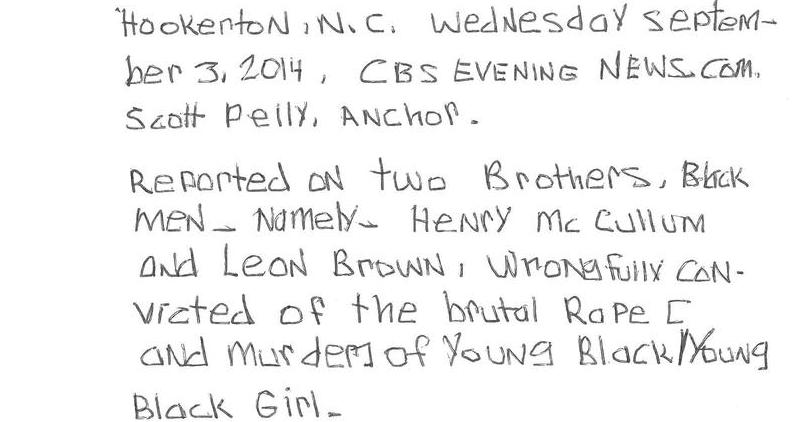 Hookerton, N.C. Wednesday Septem-
ber 3, 2014, CBS EVENING NEWS.COM.
Scott Pelly, ANchor.
Reported ON two Brothers, Black
MEN - Namely - HENRY Mc CULLUM
and LEON BROWN, WRONgfully CON-
victed of the brutal Rape [
and murder] of YOUNG Black/Young
Black Girl -